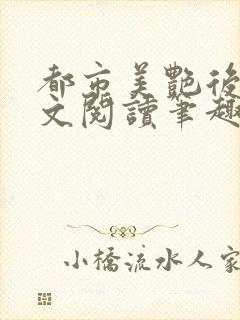 都市美艷後
文閱讀筆趣
小橋流水人家